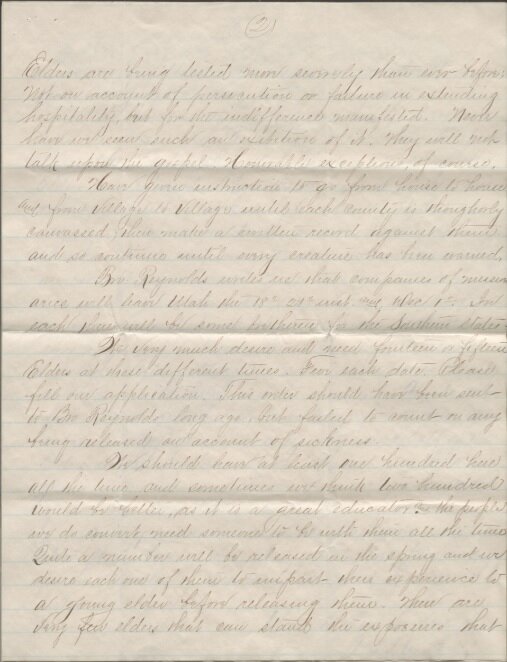 (2)
Elders are being tested more severely than ever before.
Not on account of persecution or failure in extending
hospitality, but for the indifference manifested. Never
have we seen such an exibition of it. They will not
talk upon the gospel. Honorable exceptions, of course.
Have given instruction to go from house to house
and from village to village until each county is thoughorly
canvassed, then make a written record against them
and so continue until every creature has been warned.
Bro Reynolds writes us that companies of mission
aries will leave Utah the 18th 24th inst and Dec 1st. In
each there will be some brethren for the Southern states
We very much desire and need fourteen or fifteen
Elders at these different times. For each date. Please
fill our application. This order should have been sent
to Bro Reynolds long ago, but failed to count on any
being released on account of sickness.
We should have at least one hundred here
all the time and sometimes we think two hundred
would be better, as it is a great educator & the people
we do convert need someone to be with them all the time
Quite a number will be released in the spring and we
desire each one of them to impart their experience to
a young elder before releasing them. There are
very few elders that can stand the exposures that